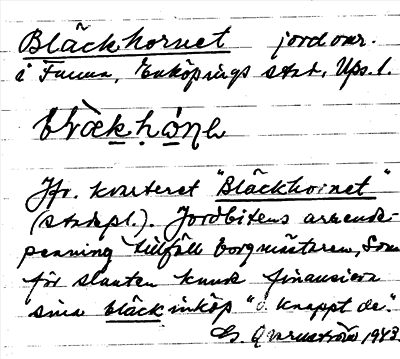 Bläckhornet jordområ.
i Fanna, Enköpings stad, Ups. l.
Jfr. kvarteret "Bläckhornet"
(stadspl.). Jordbitens arrende-
penning tillföll borgmästaren, som
för slanten kunde finansiera
sina bläckinköp "o. knappt de".
G. Qvarnström 1943.